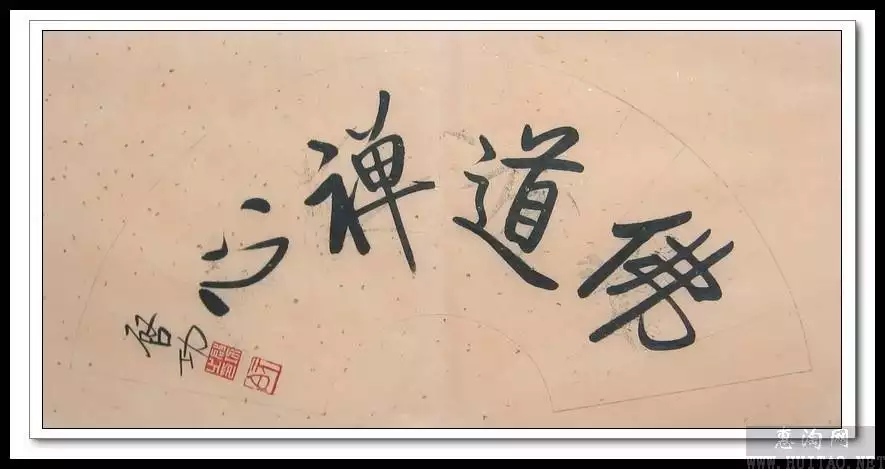 佛道禅心
启功
惠淘网
WWW.HUITAO.NET